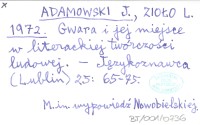 ADAMOWSKI J., ZIOŁO L.
1972. Gwara i jej miejsce
w literackiej twórczości
ludowej. – Językoznawca
(Lublin) 25: 65-75.
M.in. wypowiedź Nowobielskiej.
BJ/001/0236